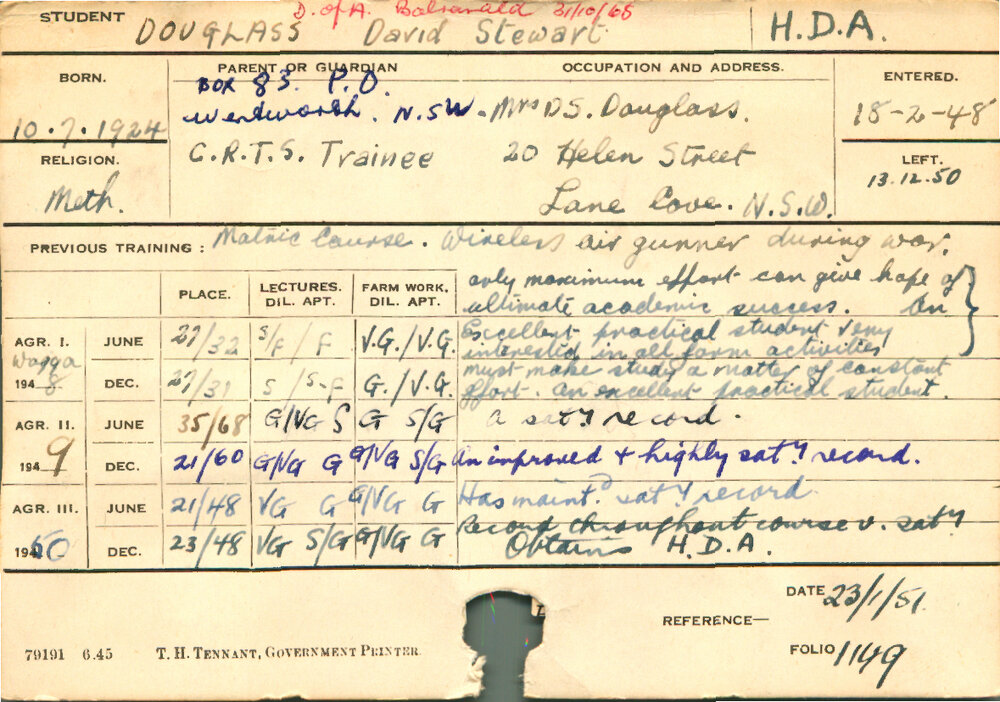 D. of A. Balranald 31/10/65
STUDENT DOUGLASS David Stewart H.D.A.
BORN. PARENT OR GUARDIAN OCCUPATION AND ADDRESS. ENTERED.
BOX 83. P.O.
Wentworth. N.S.W. Mrs D.S. Douglass.
10.7.1924 18-2-48
RELIGION. C.R.T.S. Trainee 20 Helen Street LEFT.
Meth. Lane Cove. N.S.W. 13.12.50
PREVIOUS TRAINING: Matric Course. Wireless air gunner during war.
PLACE. LECTURES. DIL. APT. FARM WORK, DIL. APT.
only maximum effort can give hope of
ultimate academic success. An
AGR. I. JUNE 27/32 S/F / F V.G./V.G. Excellent practical student very
interested in all farm activities
Wagga
1948 DEC. 27/31 S / S-F G./V.G. must make study a matter of constant
effort. An excellent practical student.
AGR. II. JUNE 35/68 G/VG S G S/G A sat'y record.
1949 DEC. 21/60 G/VG G G/VG S/G An improved & highly sat'y record.
AGR. III. JUNE 21/48 VG G G/VG G Has maint'd sat'y record.
1950 DEC. 23/48 VG S/G G/VG G Record throughout course v. sat'y
Obtains H.D.A.
DATE 23/1/51
REFERENCE—
79191 6.45 T. H. TENNANT, GOVERNMENT PRINTER. FOLIO 1149